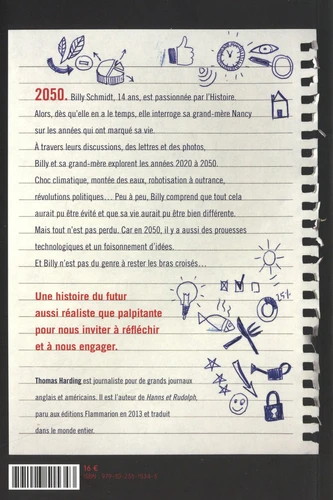 2050. Billy Schmidt, 14 ans, est passionnée par l'Histoire.
Alors, dès qu'elle en a le temps, elle interroge sa grand-mère Nancy
sur les années qui ont marqué sa vie.
À travers leurs discussions, des lettres et des photos,
Billy et sa grand-mère explorent les années 2020 à 2050.
Choc climatique, montée des eaux, robotisation à outrance,
révolutions politiques… Peu à peu, Billy comprend que tout cela
aurait pu être évité et que sa vie aurait pu être bien différente.
Mais tout n'est pas perdu. Car en 2050, il y a aussi des prouesses
technologiques et un foisonnement d'idées.
Et Billy n'est pas du genre à rester les bras croisés…
25%
Une histoire du futur
aussi réaliste que palpitante
pour nous inviter à réfléchir
et à nous engager.
Thomas Harding est journaliste pour de grands journaux
anglais et américains. Il est l'auteur de Hanns et Rudolph,
paru aux éditions Flammarion en 2013 et traduit
dans le monde entier.
16 €
ISBN